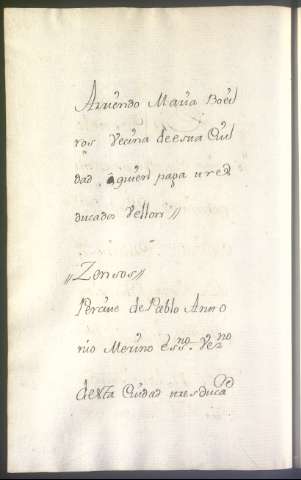 Arriendo Maria Boeil
ros Vecina de esta Ciu
dad, a quien paga tres
ducados Vellon //
// Zensos //
Percive de Pablo Anto
nio Merino ess.no Vez.no
de esta Ciudad tres duca